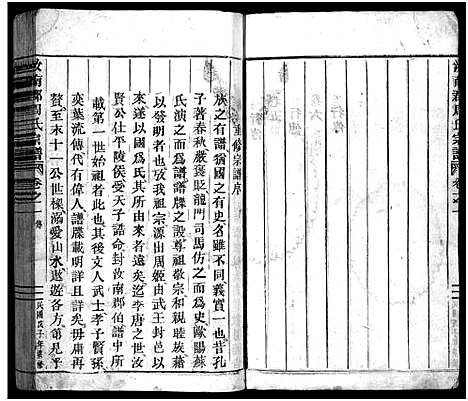 汝南郡周氏宗譜
卷之一
重修宗譜序
族之有譜猶國之有史名雖不同義實一也昔孔
子著春秋嚴褒貶龍門司馬仿之而為史歐陽蘇
氏演之而為譜譜牒之設尊祖敬宗和親睦族藉
以發明世系也攷我祖宗源出周姬由武王封邑以
來遂以國為氏其所由來者遠矣迄李唐之世汝
賢公仕平陵侯受天子誥命封汝南郡伯譜中所
載第一世始祖者此也其後文人武士孝子賢孫
奕葉流傳代有偉人譜牒載明詳且詳矣毋庸再
贅至末十一公世樑溺愛山水遨遊各方第見乎
汝南郡周氏宗譜
卷之一
民國戊子年重修